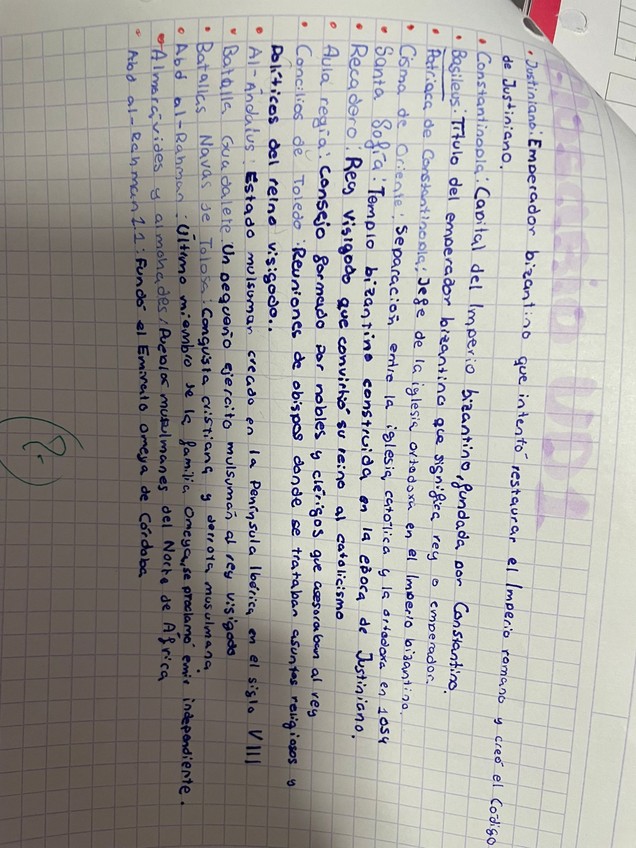 Glosario UD1
• Justiniano: Emperador bizantino que intentó restaurar el Imperio romano y creó el Código
de Justiniano.
• Constantinopla: Capital del Imperio bizantino, fundada por Constantino.
• Basileus: Título del emperador bizantino que significa rey o emperador.
• Patriaca de Constantinopla: Jefe de la iglesia ortodoxa en el Imperio bizantino.
• Cisma de Oriente: Separación entre la iglesia católica y la ortodoxa en 1054
• Santa Sofía: Templo bizantino construida en la época de Justiniano.
• Recadero: Rey visigodo que convirtió su reino al catolicismo
• Aula regia: Consejo formado por nobles y clérigos que asesoraban al rey
• Concilios de Toledo: Reuniones de obispos donde se trataban asuntos religiosos y
Políticos del reino visigodo..
• Al-Ándalus: Estado mulsuman creado en la Península Ibérica en el siglo VIII
• Batalla Guadalete: Un pequeño ejercito mulsumañ al rey visigodo
• Batallas Navas de Tolosa: Conqusta cristiana y derrota musulmana
• Abd al-Rahman: Último miembro de la familia Omeya, se proclamó emir independiente.
• Almorávides y almohades: Pueblos musulmanes del Norte de África
• Abd al-Rahman 11: Fundó el Emirato omeya de Córdoba